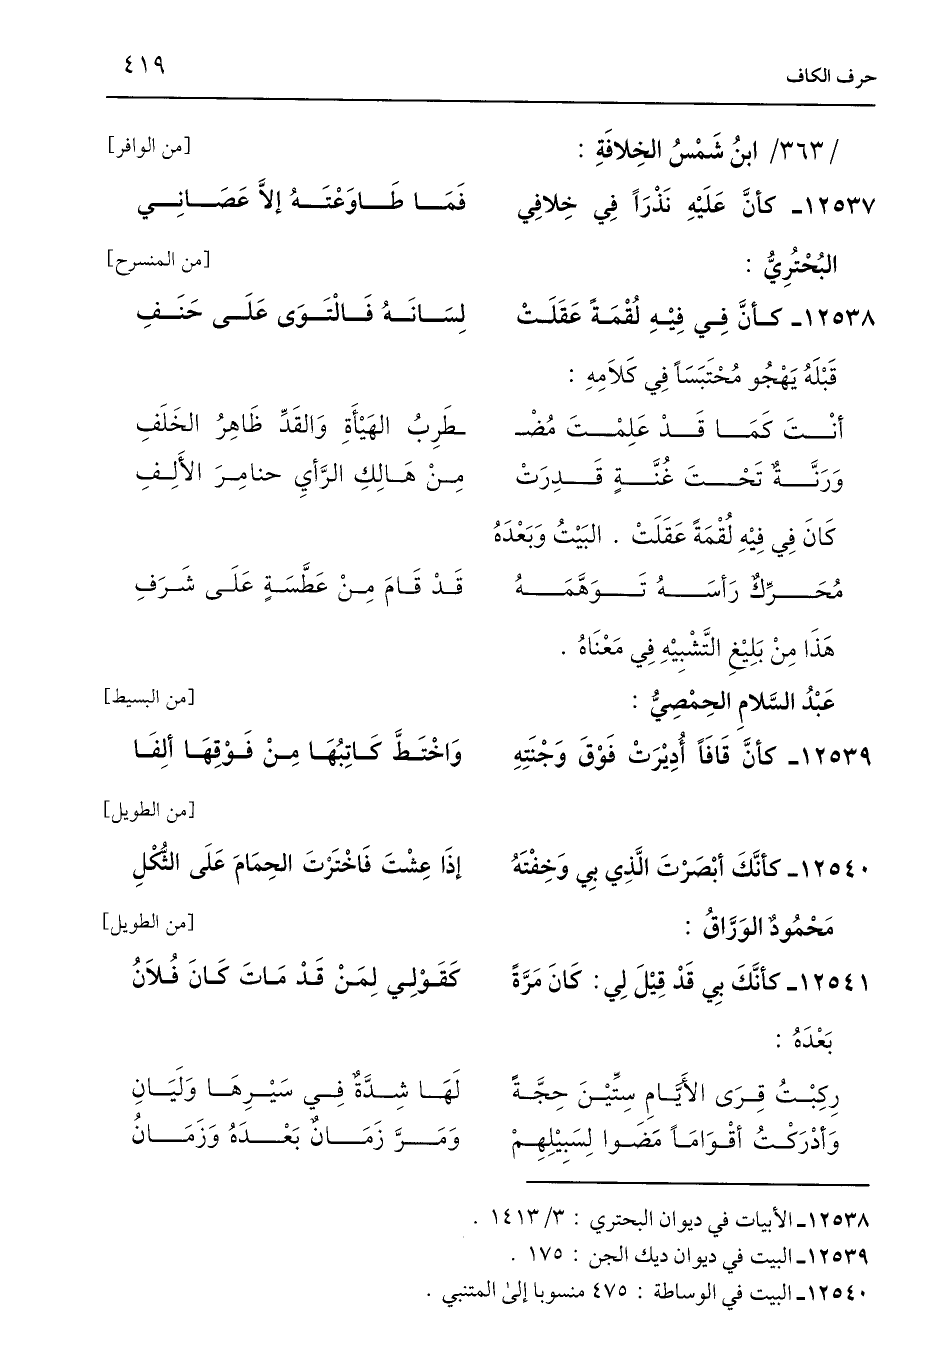 حرف الكاف ٤١٩
/٣٦٣/ ابنُ شَمْسُ الخِلافَةِ : [من الوافر]
١٢٥٣٧ـ كأنَّ عَلَيْهِ نَذْرَاً فِي خِلافِي فَمَا طَاوَعْتَهُ إلاَّ عَصَانِي
البُحْتُرِيُّ : [من المنسرح]
١٢٥٣٨ـ كأنَّ فِي فِيْهِ لُقْمَةً عَقَلَتْ لِسَانَهُ فَالْتَوَى عَلَى حَنَفِ
قَبْلَهُ يَهْجُو مُحْتَبَسَاً فِي كَلاَمِهِ :
أنْتَ كَمَا قَدْ عَلِمْتَ مُضْـ ـطَرِبُ الهَيْأَةِ وَالقَدِّ ظَاهِرُ الخَلَفِ
وَرَنَّةٌ تَحْتَ غُنَّةٍ قَدِرَتْ مِنْ هَالِكِ الرَّأيِ حنامِرَ الأَلِفِ
كَانَ فِي فِيْهِ لُقْمَةً عَقَلَتْ . البَيْتُ وَبَعْدَهُ
مُحَرِّكٌ رَأسَهُ تَوَهَّمَهُ قَدْ قَامَ مِنْ عَطْسَةٍ عَلَى شَرَفِ
هَذَا مِنْ بَلِيْغِ التَّشْبِيْهِ فِي مَعْنَاهُ .
عَبْدُ السَّلامِ الحِمْصِيُّ : [من البسيط]
١٢٥٣٩ـ كأنَّ قَافَاً أُدِيْرَتْ فَوْقَ وَجْنَتِهِ وَاخْتَطَّ كَاتِبُهَا مِنْ فَوْقِهَا ألِفَا
[من الطويل]
١٢٥٤٠ـ كأنَّكَ أبْصَرْتَ الَّذِي بِي وَخِفْتَهُ إذَا عِشْتَ فَاخْتَرْتَ الحِمَامَ عَلَى الثُّكْلِ
مَحْمُودٌ الوَرَّاقُ : [من الطويل]
١٢٥٤١ـ كأنَّكَ بِي قَدْ قِيْلَ لِي : كَانَ مَرَّةً كَقَوْلِي لِمَنْ قَدْ مَاتَ كَانَ فُلاَنُ
بَعْدَهُ :
رِكِبْتُ قِرَى الأَيَّامِ سِتِّيْنَ حِجَّةً لَهَا شِدَّةٌ فِي سَيْرِهَا وَلَيَانِ
وَأدْرَكْتُ أقْوَامَاً مَضَوا لِسَبِيْلِهِمْ وَمَرَّ زَمَانٌ بَعْدَهُ وَزَمَانُ
١٢٥٣٨ـ الأبيات في ديوان البحتري : ٣/ ١٤١٣ .
١٢٥٣٩ـ البيت في ديوان ديك الجن : ١٧٥ .
١٢٥٤٠ـ البيت في الوساطة : ٤٧٥ منسوبا إلىٰ المتنبي .